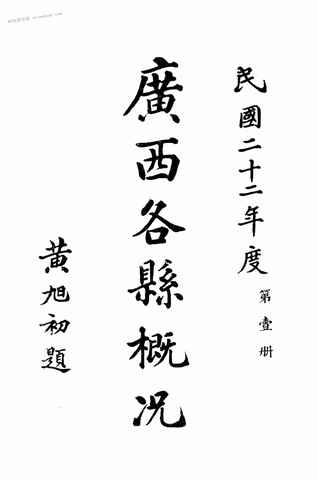 民國二十二年度 第壹册
廣西各縣概况
黃旭初題